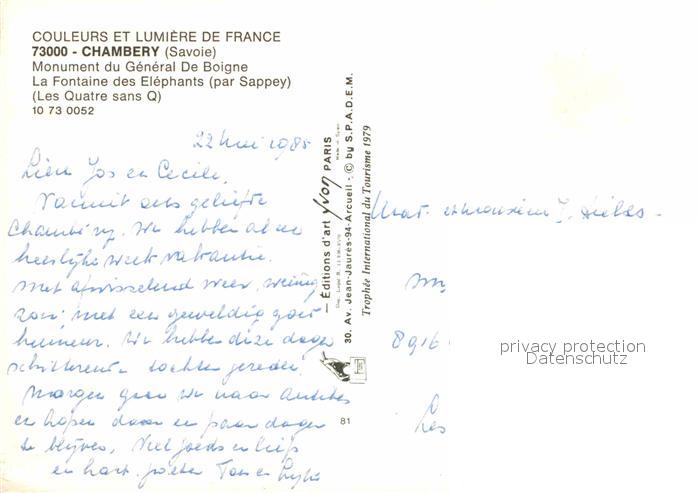 COULEURS ET LUMIÈRE DE FRANCE
73000 - CHAMBERY (Savoie)
Monument du Général De Boigne
La Fontaine des Eléphants (par Sappey)
(Les Quatre sans Q)
10 73 0052
22 mei 1985
Lieve Jos en Cecile,
Vanuit ons geliefde
Chambéry. We hebben al een
heerlijke week vakantie.
Met afwisselend weer, weinig
zon; met een geweldig goed
humeur. We hebben deze dagen
schitterende tochten gereden.
Morgen gaan we naar Antibes
en hopen daar een paar dagen
te blijven. Veel goeds en liefs
en hart. groeten
— Éditions d'art yvon PARIS
30. Av. Jean-Jaurès-94-Arcueil - © by S.P.A.D.E.M.
Trophée International du Tourisme 1979
81
8916
privacy protection
Datenschutz